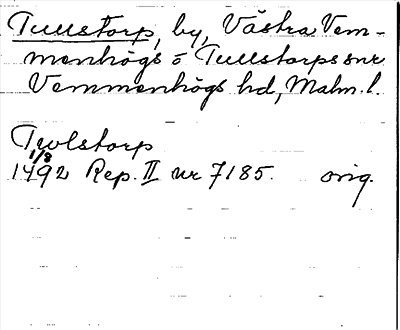 Tullstorp, by, Västra Vem-
menhögs o Tullstorps snr
Vemmenhögs hd, Malm. l.
Twlstorp
1/8
1492 Rep. II nr 7185. orig.